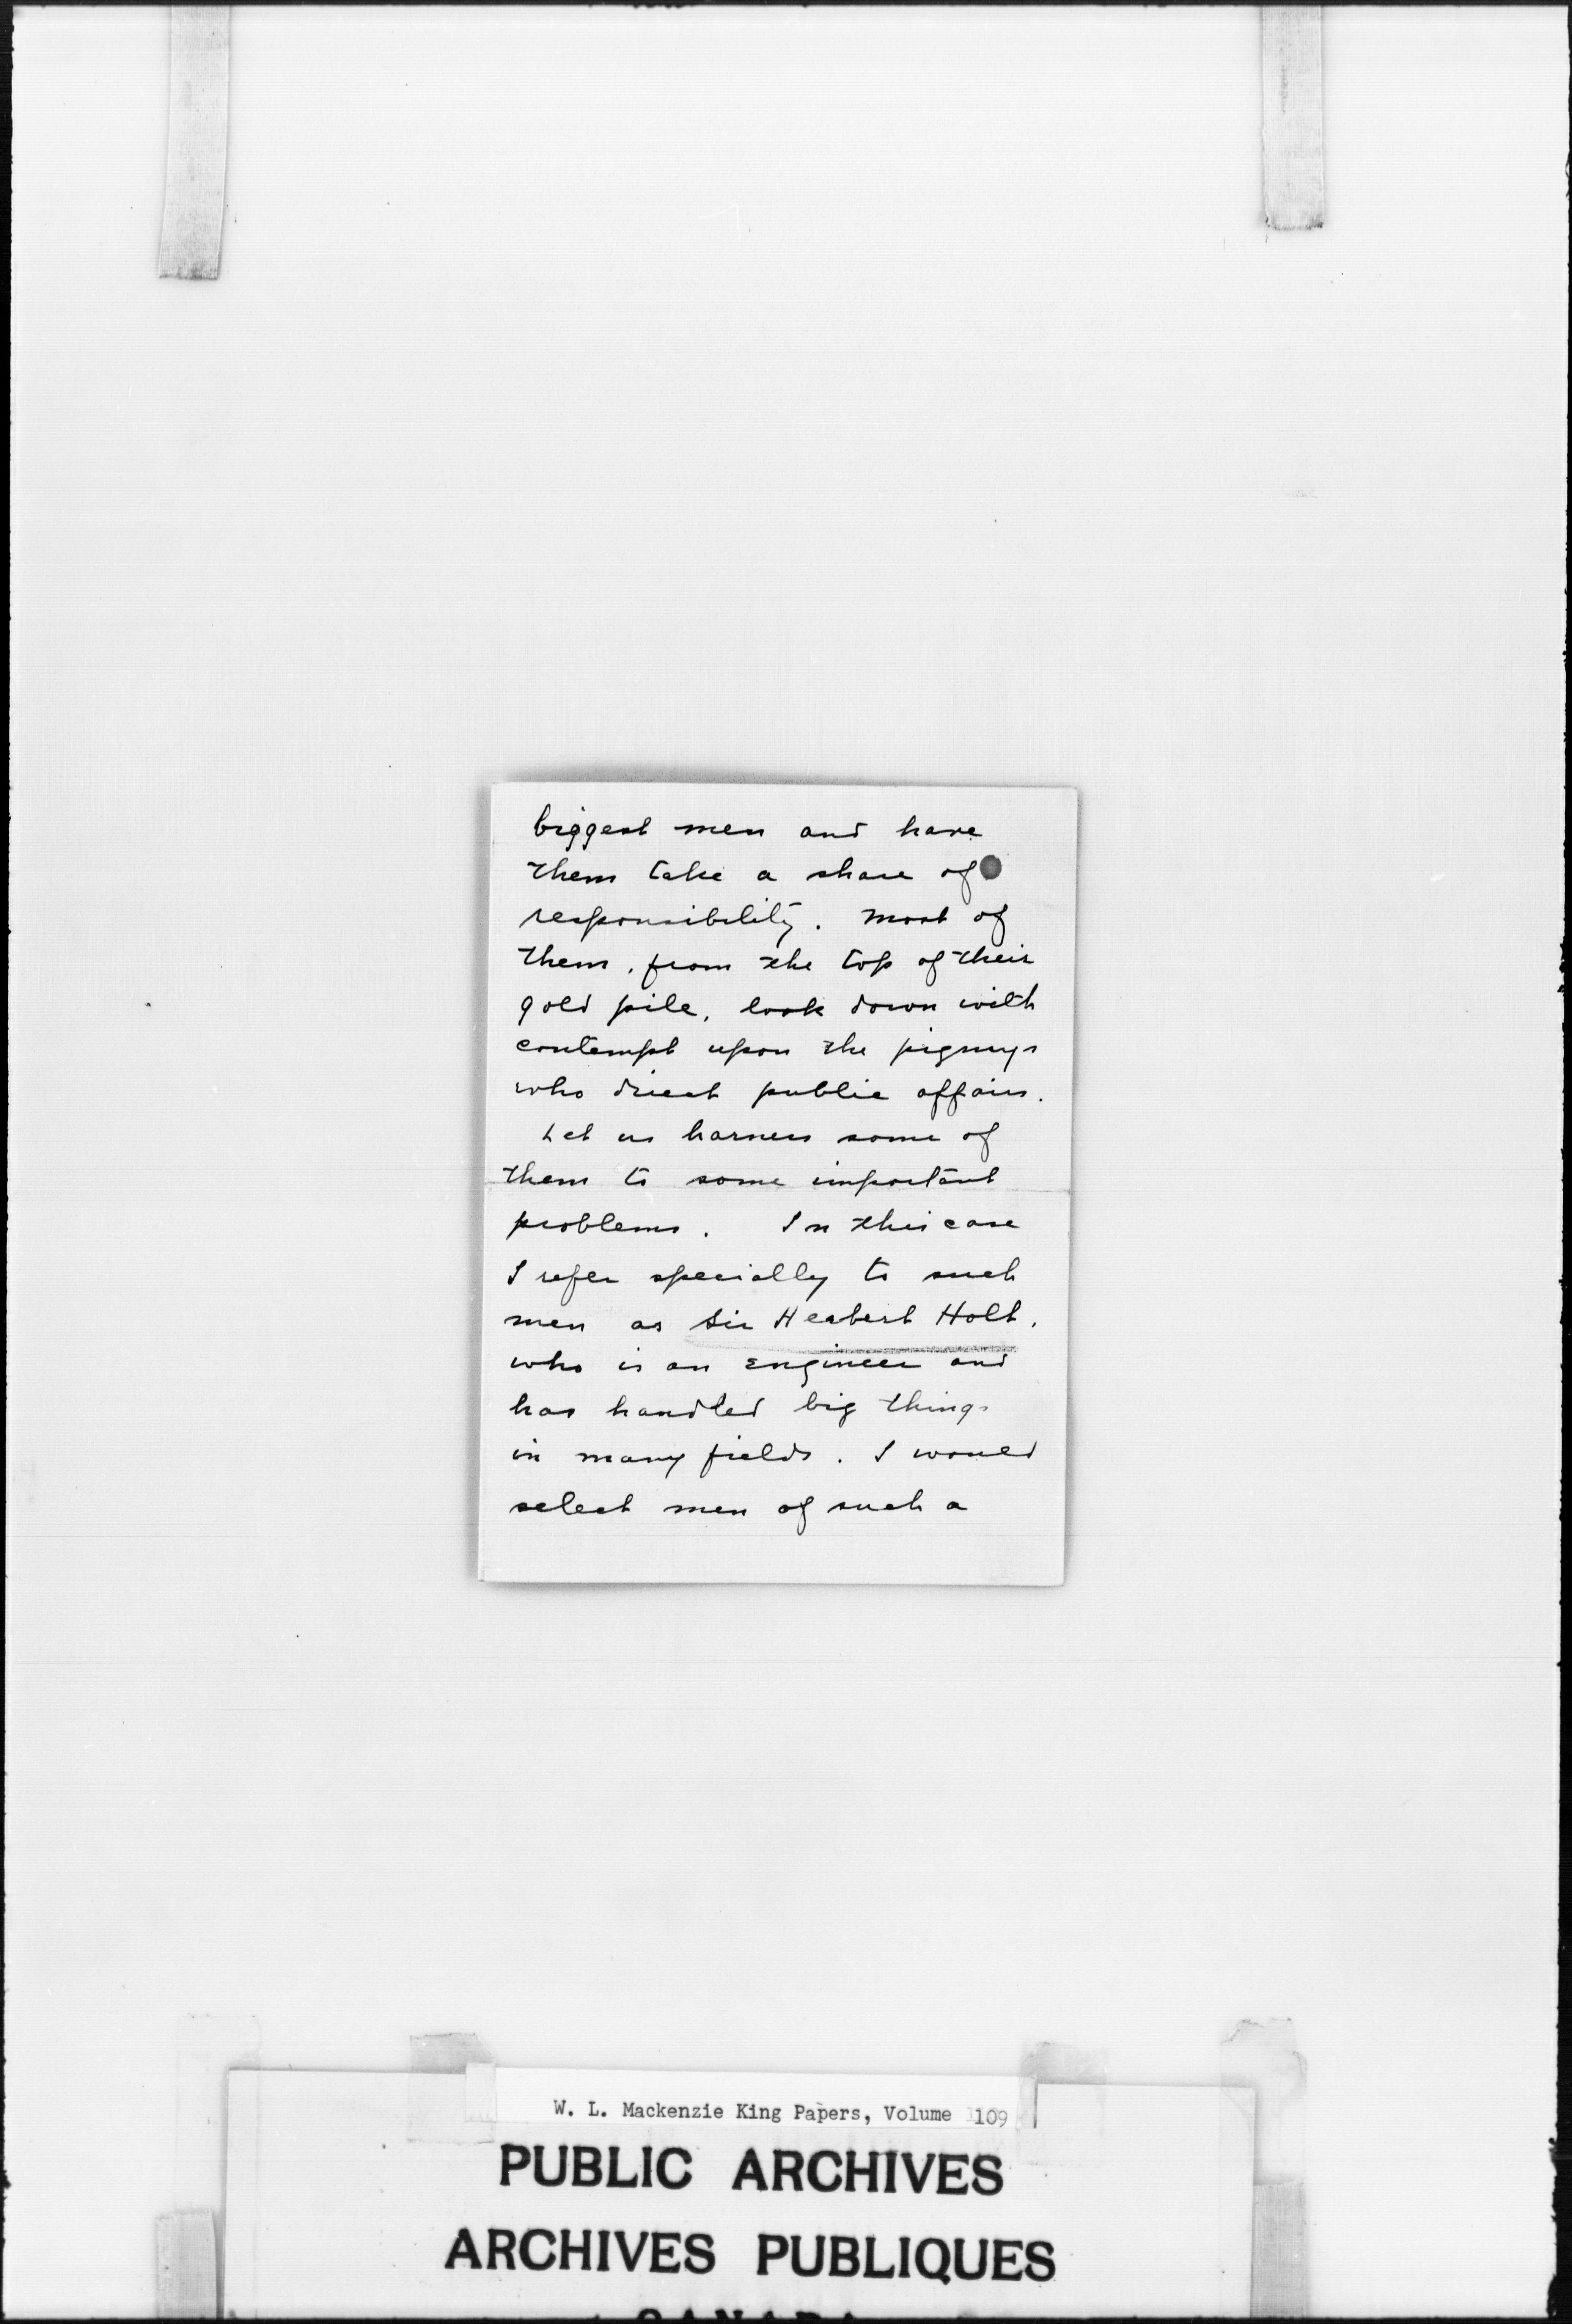 biggest men and have
them take a share of
responsibility. Most of
them, from the top of their
gold pile, look down with
contempt upon the pigmys
who direct public affairs.
Let us harness some of
them to some important
problems. In this case
I refer specially to such
men as Sir Herbert Holt,
who is an engineer and
has handled big things
in many fields. I would
select men of such a
W. L. Mackenzie King Papers, Volume 109
PUBLIC ARCHIVES
ARCHIVES PUBLIQUES
CANADA